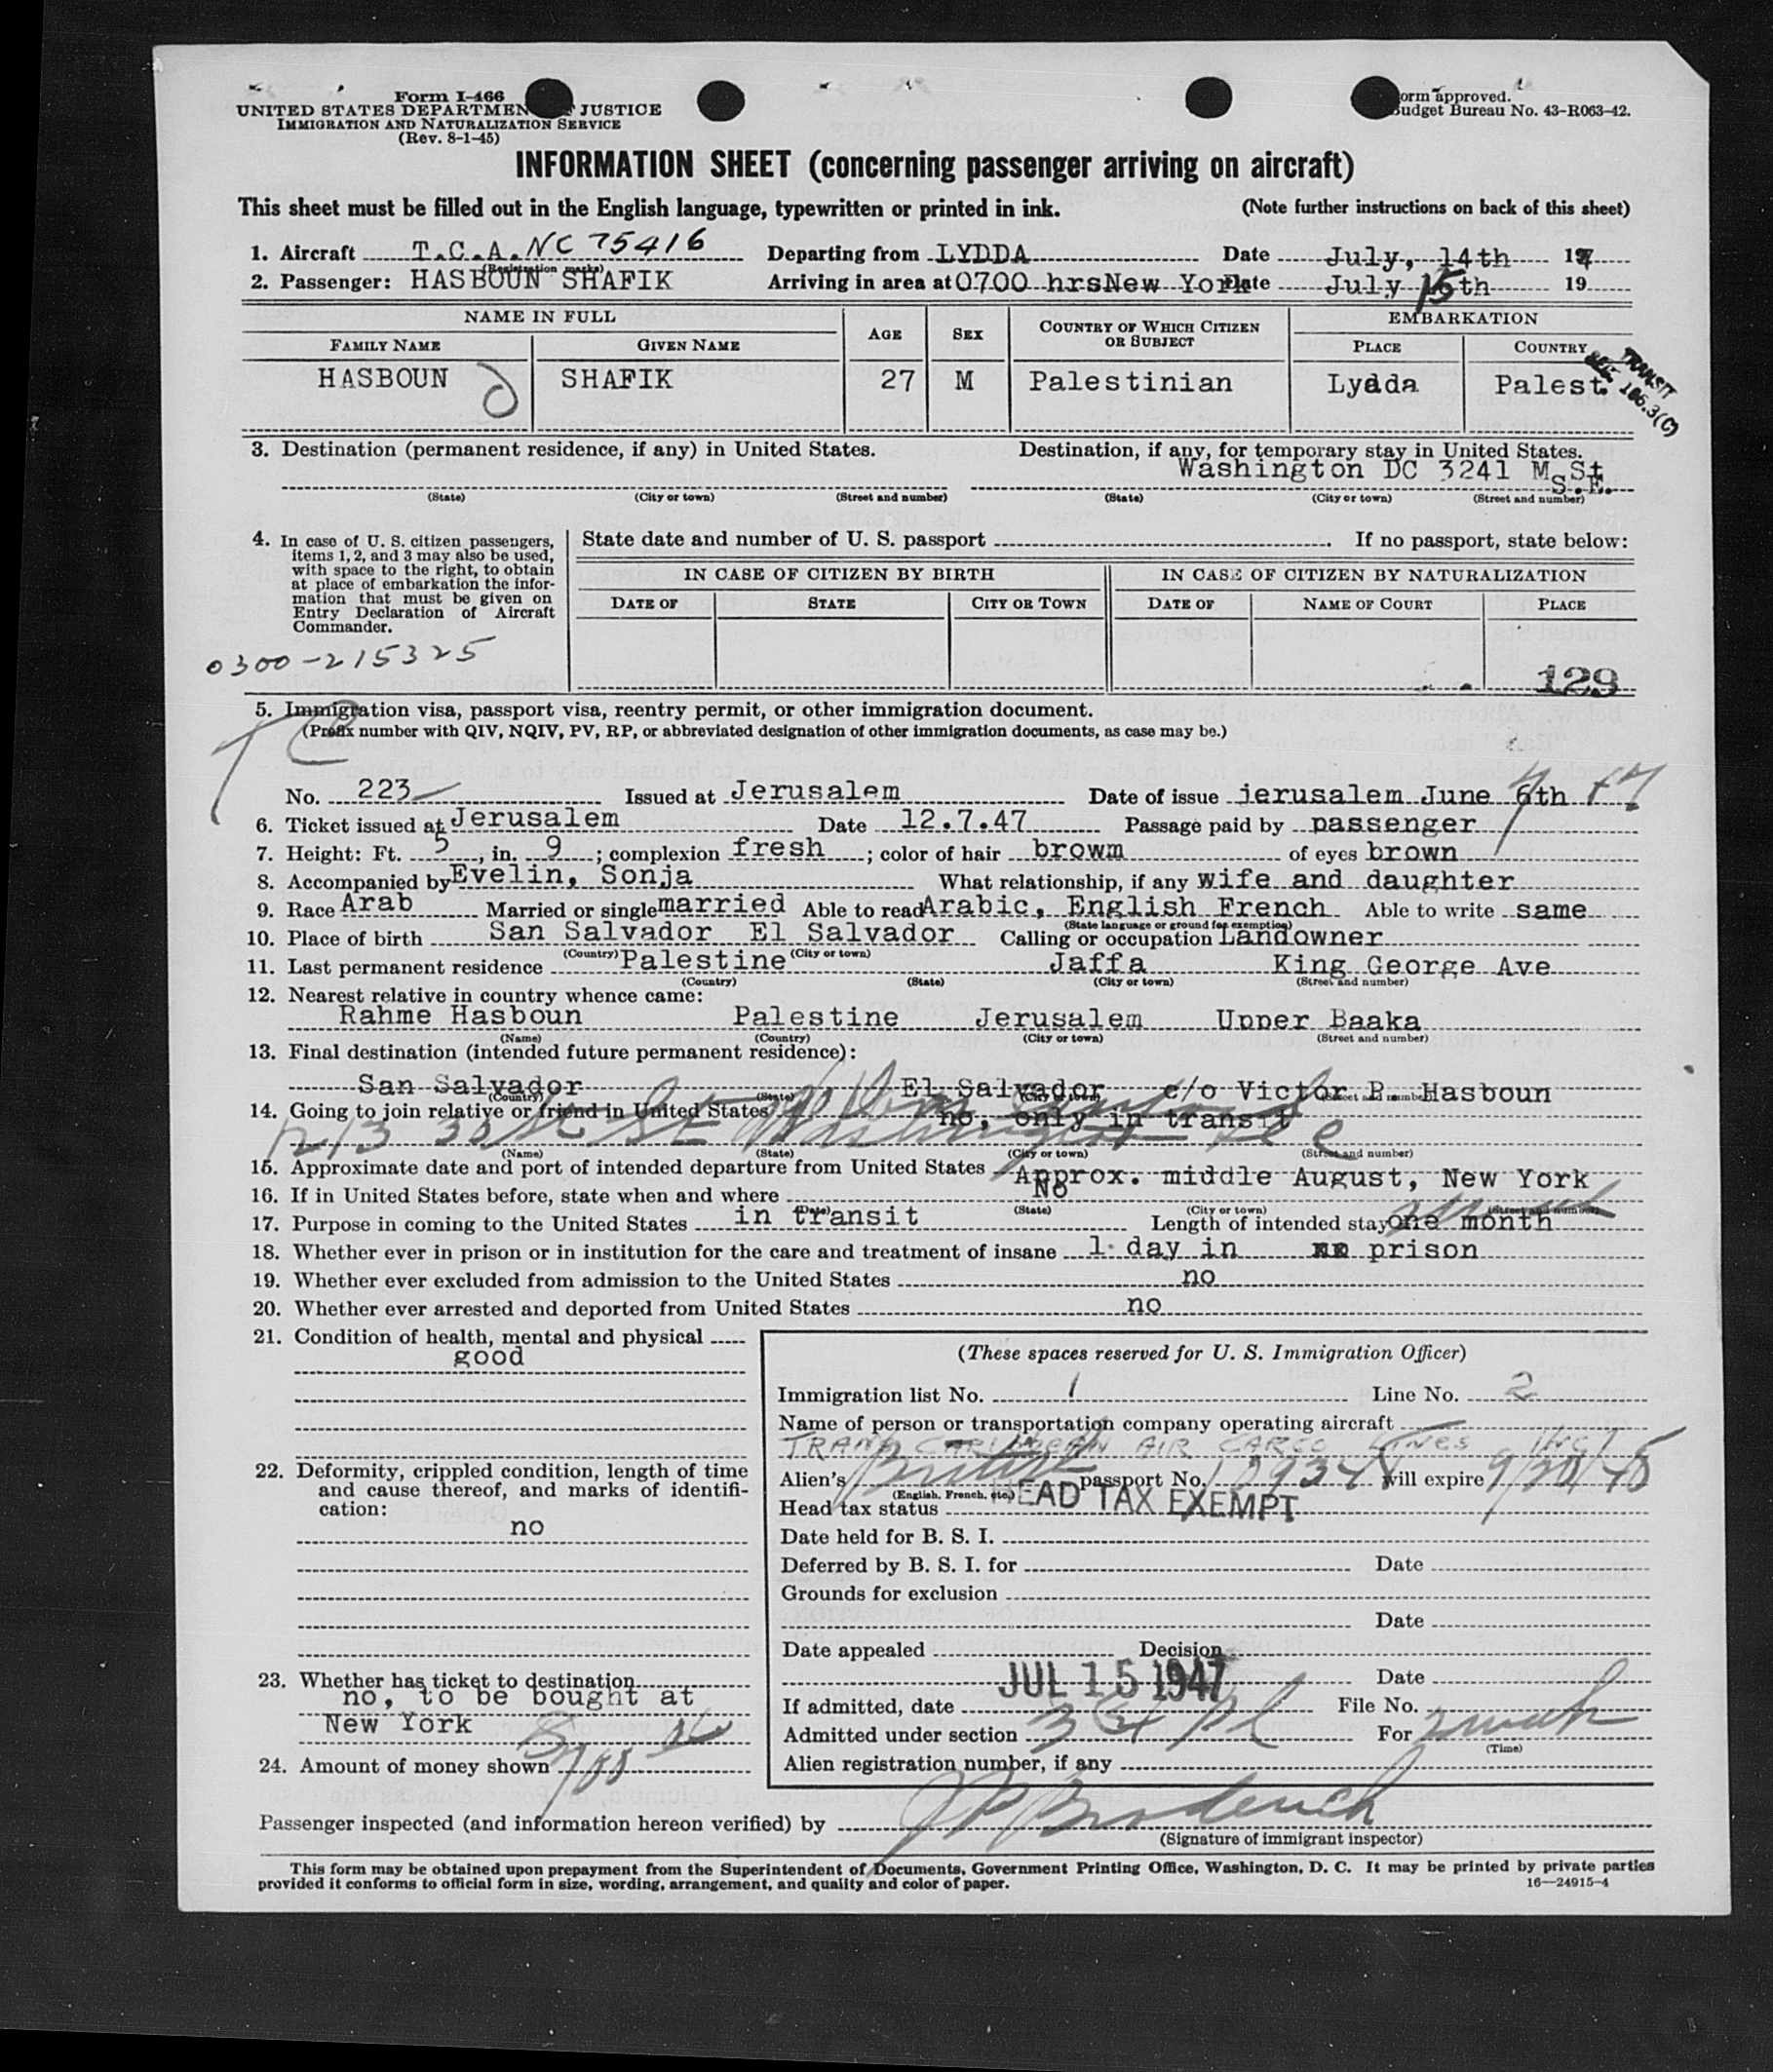 Form I-466
UNITED STATES DEPARTMEN JUSTICE
IMMIGRATION AND NATURALIZATION SERVICE
(Rev. 8-1-45)
orm approved.
udget Bureau No. 43-R063-42.
INFORMATION SHEET (concerning passenger arriving on aircraft)
This sheet must be filled out in the English language, typewritten or printed in ink. (Note further instructions on back of this sheet)
1. Aircraft T.C.A. NC 75416 Departing from LYDDA Date July, 14th 19
(Registration marks)
2. Passenger: HASBOUN SHAFIK Arriving in area at 0700 hrsNew York Date July 15th 19
NAME IN FULL AGE SEX COUNTRY OF WHICH CITIZEN OR SUBJECT EMBARKATION
FAMILY NAME GIVEN NAME PLACE COUNTRY
HASBOUN SHAFIK 27 M Palestinian Lydda Palest.
TRANSIT
SEC. 106.3(C)
3. Destination (permanent residence, if any) in United States. Destination, if any, for temporary stay in United States.
Washington DC 3241 M St
S.E.
(State) (City or town) (Street and number) (State) (City or town) (Street and number)
4. In case of U. S. citizen passengers, items 1, 2, and 3 may also be used, with space to the right, to obtain at place of embarkation the information that must be given on Entry Declaration of Aircraft Commander.
State date and number of U. S. passport . If no passport, state below:
IN CASE OF CITIZEN BY BIRTH IN CASE OF CITIZEN BY NATURALIZATION
DATE OF STATE CITY OR TOWN DATE OF NAME OF COURT PLACE
0300-215325
129
5. Immigration visa, passport visa, reentry permit, or other immigration document.
(Prefix number with QIV, NQIV, PV, RP, or abbreviated designation of other immigration documents, as case may be.)
No. 223 Issued at Jerusalem Date of issue jerusalem June 6th 47
6. Ticket issued at Jerusalem Date 12.7.47 Passage paid by passenger
7. Height: Ft. 5, in. 9; complexion fresh; color of hair browm of eyes brown
8. Accompanied by Evelin, Sonja What relationship, if any wife and daughter
9. Race Arab Married or single married Able to read Arabic, English French Able to write same
(State language or ground for exemption)
10. Place of birth San Salvador El Salvador Calling or occupation Landowner
(Country) (City or town)
11. Last permanent residence Palestine Jaffa King George Ave
(Country) (State) (City or town) (Street and number)
12. Nearest relative in country whence came:
Rahme Hasboun Palestine Jerusalem Upper Baaka
(Name) (Country) (City or town) (Street and number)
13. Final destination (intended future permanent residence):
San Salvador El Salvador c/o Victor P. Hasboun
(Country) (State) (City or town) (Street and number)
14. Going to join relative or friend in United States
no, only in transit
1213 30th St Washington D C
(Name) (State) (City or town) (Street and number)
15. Approximate date and port of intended departure from United States Approx. middle August, New York
16. If in United States before, state when and where No
(Date) (State) (City or town) (Street and number)
17. Purpose in coming to the United States in transit Length of intended stay one month
18. Whether ever in prison or in institution for the care and treatment of insane 1 day in prison
19. Whether ever excluded from admission to the United States no
20. Whether ever arrested and deported from United States no
21. Condition of health, mental and physical
good
22. Deformity, crippled condition, length of time and cause thereof, and marks of identification:
no
23. Whether has ticket to destination
no, to be bought at
New York
24. Amount of money shown
(These spaces reserved for U. S. Immigration Officer)
Immigration list No. 1 Line No. 2
Name of person or transportation company operating aircraft
TRANS CARIBBEAN AIR CARGO LINES INC
Alien's British passport No. 189348 will expire 9/20/48
(English, French, etc.)
Head tax status HEAD TAX EXEMPT
Date held for B. S. I.
Deferred by B. S. I. for Date
Grounds for exclusion
Date
Date appealed Decision
Date
If admitted, date JUL 15 1947 File No.
Admitted under section For
(Time)
Alien registration number, if any
Passenger inspected (and information hereon verified) by
(Signature of immigrant inspector)
This form may be obtained upon prepayment from the Superintendent of Documents, Government Printing Office, Washington, D. C. It may be printed by private parties
provided it conforms to official form in size, wording, arrangement, and quality and color of paper.
16—24915-4